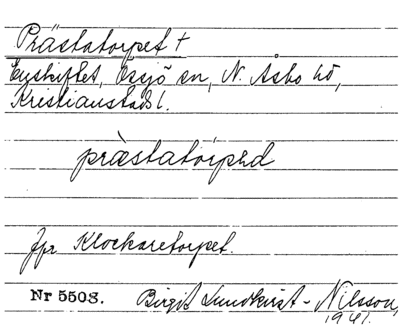 Prästatorpet †
Enskiftet, Össjö sn, N. Åsbo hd,
Kristianstads l.
præ̀statórpəd
Jfr Klockaretorpet.
Nr 5503. Birgit Lundkvist-Nilsson,
1941.